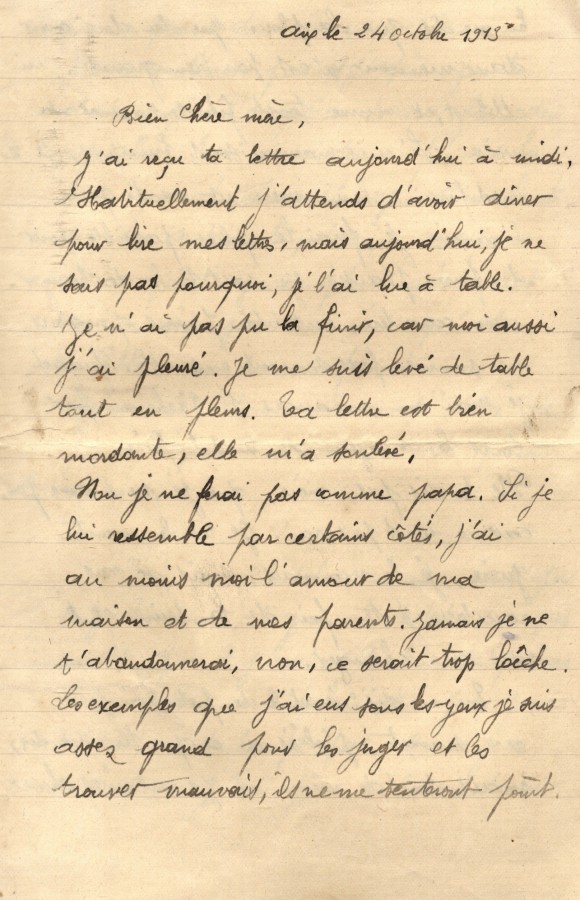 Aix le 24 octobre 1913
Bien Chère mère,
J'ai reçu ta lettre aujourd'hui à midi,
Habituellement j'attends d'avoir diner
pour lire mes lettres, mais aujourd'hui, je ne
sais pas pourquoi, je l'ai lue à table.
Je n'ai pas pu la finir, car moi aussi
j'ai pleuré. Je me suis levé de table
tout en pleurs. Ta lettre est bien
mordante, elle m'a soulevé.
Non je ne ferai pas comme papa. Si je
lui ressemble par certains côtés, j'ai
au moins moi l'amour de ma
maison et de mes parents. Jamais je ne
t'abandonnerai, non, ce serait trop lâche.
Les exemples que j'ai eus sous les yeux je suis
assez grand pour les juger et les
trouver mauvais, ils ne me tenteront point.